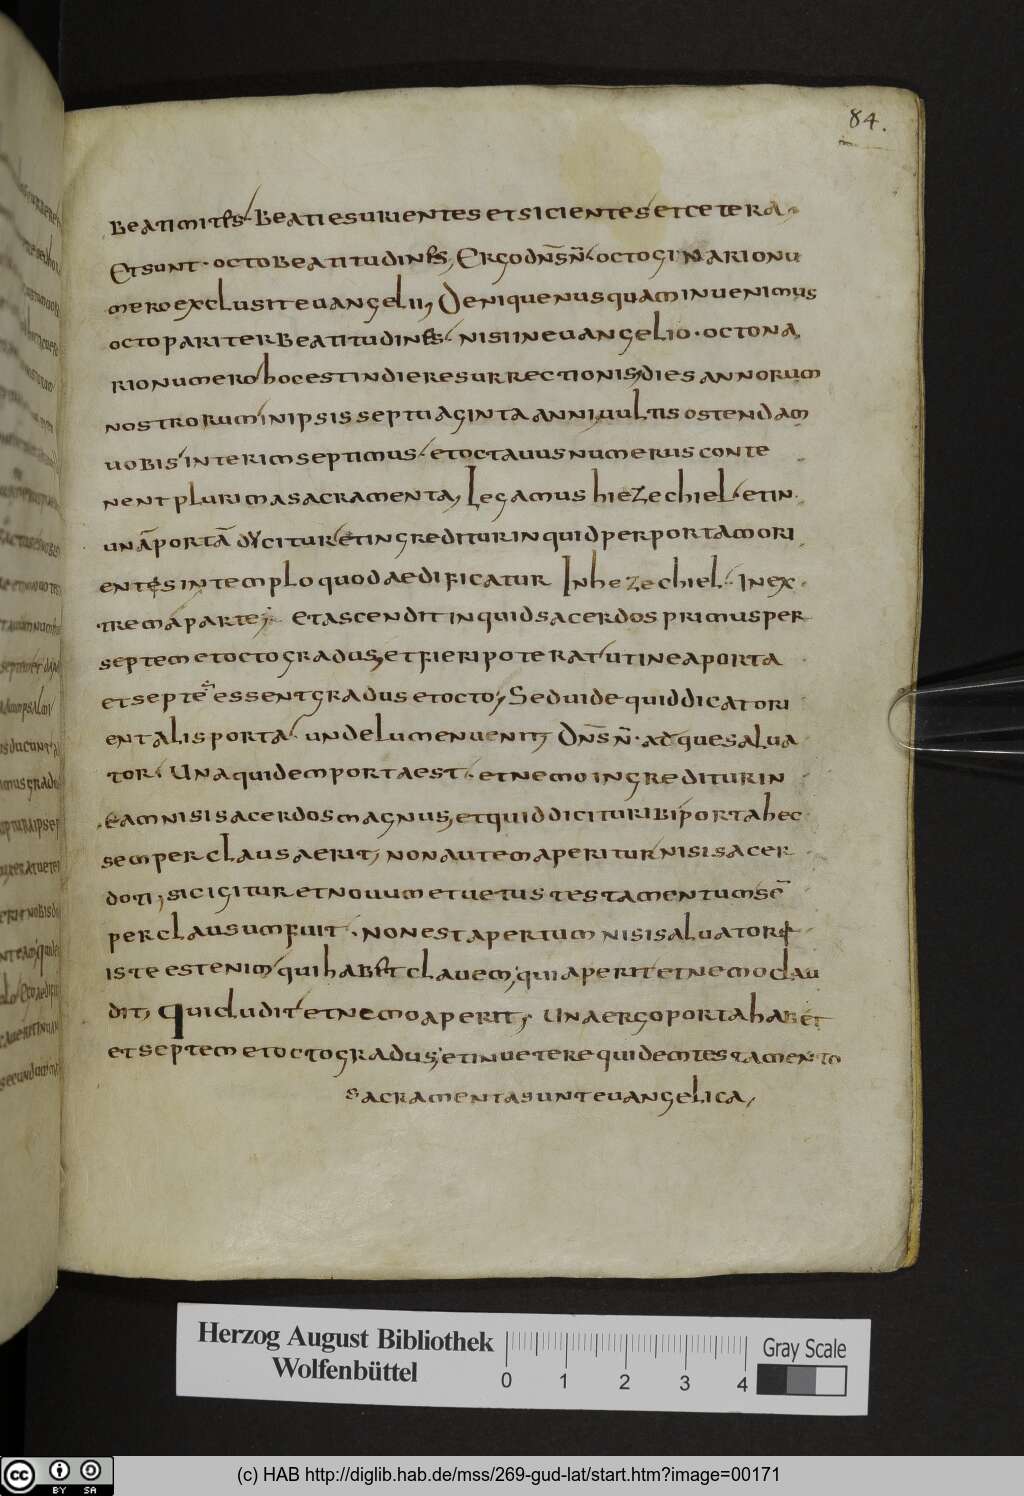 84.
beati mites. Beati esurientes et sicientes et cetera,
Et sunt · octo beatitudines, Ergo dn̄s n̄r octoginario nu
mero exclusit euangelii, Denique nusquam inuenimus
octo pariter beatitudines. nisi in euangelio · octona
rio numero hoc est in die resurrectionis, dies annorum
nostrorum in ipsis septuaginta anni, uultis ostendam
uobis interim septimus. et octauus numerus conte
nent plurima sacramenta, Legamus hiezechiel. et in
unā portā dycitur et ingreditur inquid per portam ori
entes in templo quod aedificatur Inhezechiel. Inex
trema parte; et ascendit inquid sacerdos primus per
septem et octo gradus, et fieri poterat ut in ea porta
et septē essent gradus et octo, Sed uide quid dicat ori
entalis porta. unde lumen uenit, Dn̄s n̄ · atque salua
tor. Una quidem porta est. et nemo ingreditur in
eam nisi sacerdos magnus, et quid dicitur ibi porta hec
semper clausa erit, non autem aperitur nisi sacer
doti, sic igitur et nouum et uetus testamentum sē
per clausum fuit. non est apertum nisi saluatore
iste est enim qui habet clauem, qui aperit et nemo clau
dit, Qui cludit et nemo aperit, Una ergo porta habet
et septem et octo gradus, et in uetere quidem testamento
sacramenta sunt euangelica,
Herzog August Bibliothek
Wolfenbüttel
0 1 2 3 4
Gray Scale
cc BY SA
(c) HAB http://diglib.hab.de/mss/269-gud-lat/start.htm?image=00171